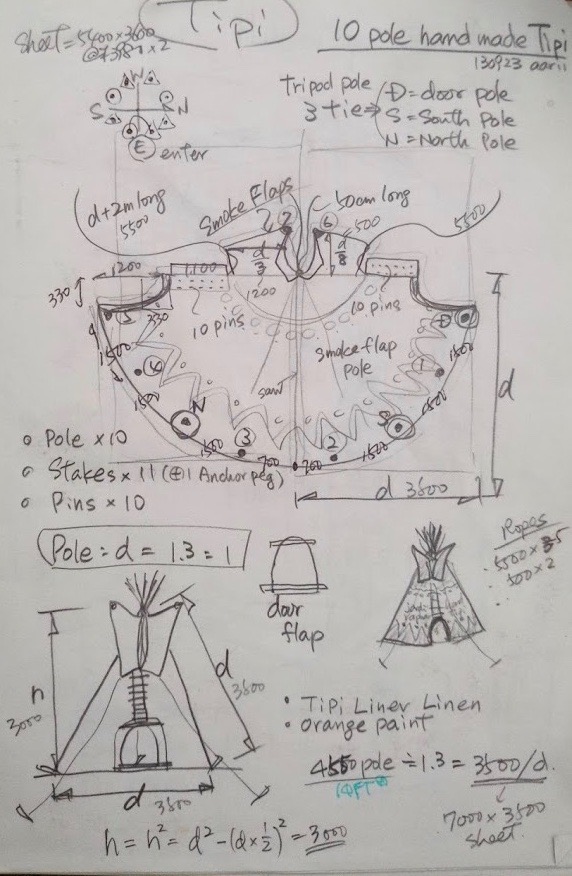 Tipi
Sheet = 5400 x 3600
10 pole hand made Tipi
130923 aarii
W
S N
E enter
Tripod pole
3 tie ⇒
D = door pole
S = South Pole
N = North Pole
d+2m long
5500
Smoke Flaps
50cm long
500
5500
7
6
d/3
d/8
1200
1,100
1200
330
330
10 pins
10 pins
Smoke flap
pole
sew
5
D
1500
4
1
1500
1500
1500
N
S
1500
3
2
1500
700
700
d
d 3600
o Pole x 10
o Stakes x 11 (⊕1 Anchor peg)
o Pins x 10
Pole : d = 1.3 : 1
door
flap
Ropes
5500 x
500 x 2
h
3000
d
3600
d 3600
• Tipi Liner Linen
• orange paint
pole ÷ 1.3 = 3500/d.
14FT
7000 x 3500
sheet.
h = h² = d² - (d x ½)² = 3000